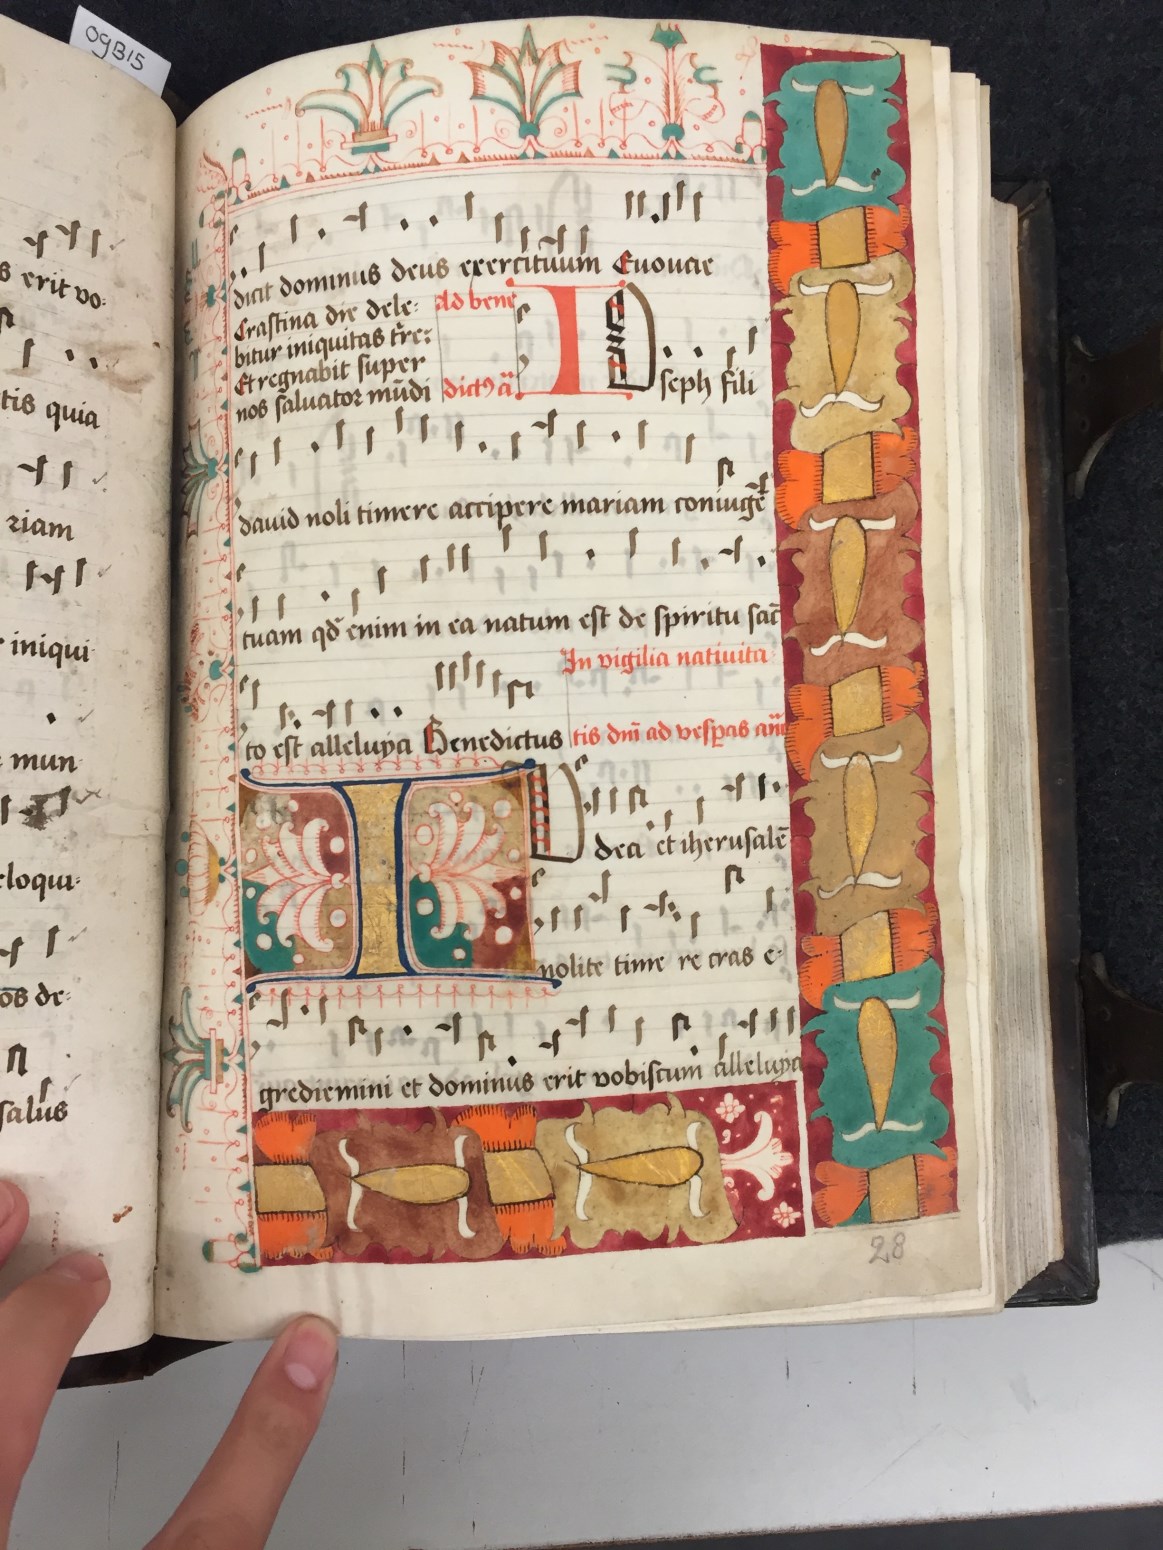 09B15
s erit vo:
tis quia
riam
r iniqui
e mun
eloqui:
o̅s de:
salus
dicit dominus deus exercituum Euoucie
Crastina die dele:
bitur iniquitas tre:
Et regnabit super
nos saluator mu̅di
Ad bene
dict9 a̅
IO
seph fili
dauid noli timere accipere mariam coniuge̅
tuam qd̅ enim in ea natum est de spiritu sac̅
In vigilia natiuita:
to est alleluya Benedictus tis dn̅i ad vesp̅as an̅a
IV
deci et iherusale̅
nolite time re cras e:
grediemini et dominus erit vobiscum alleluya
28